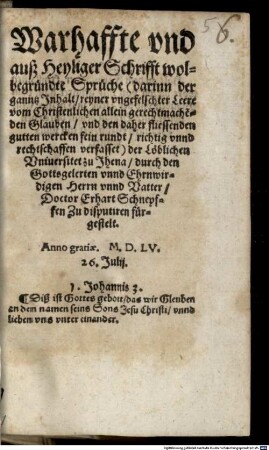 56.
Warhaffte vnd
auß Heyliger Schrifft wol-
begründte Sprüche (darinn der
gantz Inhalt / reyner vngefelschter Leere
vom Christenlichen allein gerechtmache-
den Glauben / vnd den daher fliessenden
gutten wercken fein rundt / richtig vnnd
rechtschaffen verfasset) der Löblichen
Vniuersitet zu Jhena / durch den
Gottsgelerten vnnd Ehrnwir-
digen Herrn vnnd Vatter /
Doctor Erhart Schnepf-
fen Zu disputiren für-
gestelt.
Anno gratiæ. M. D. LV.
26. Julij.
1. Johannis 3.
¶ Diß ist Gottes gebott / das wir Gleuben
an den namen seins Sons Jesu Christi / vnnd
lieben vns vnter einander.